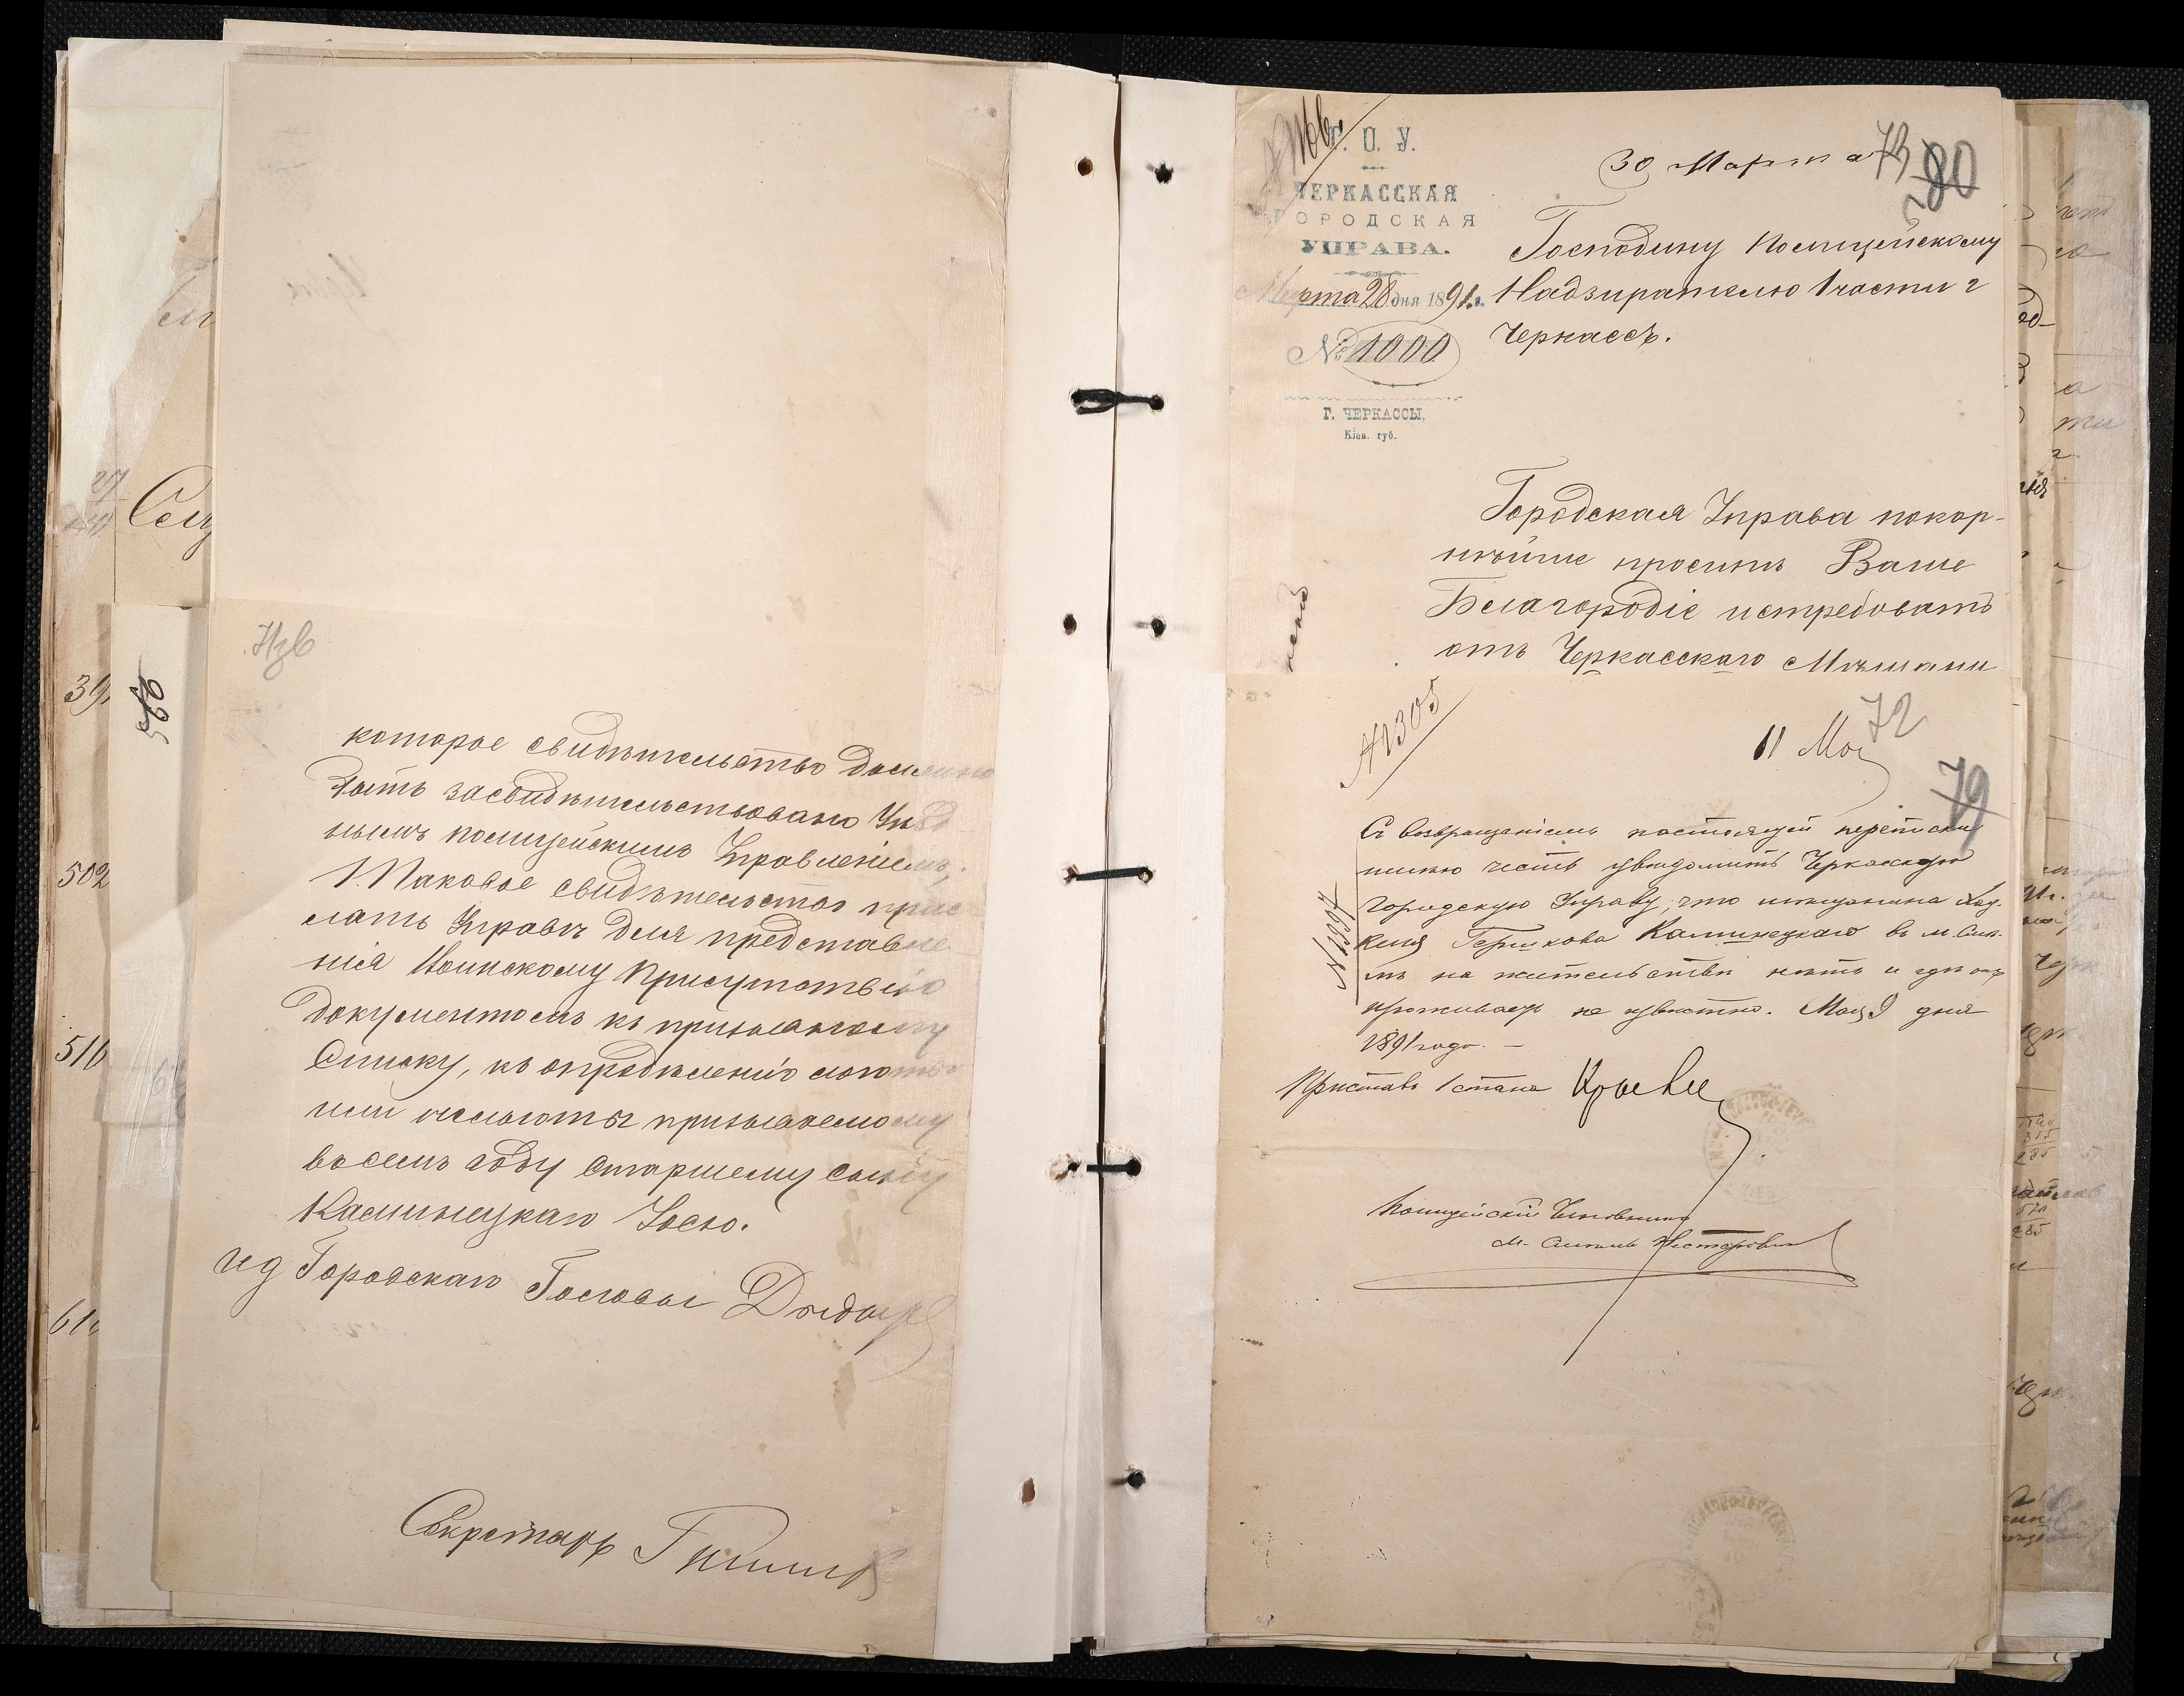 Изв
которое свидѣтельство должно
быть засвидѣтельствовано Уѣзд
нымъ полицейскимъ Управленіемъ,
И таковое свидѣтельство прис
лать Управѣ для представле
нія Воинскому Присутствію
документомъ къ призывному
Списку, къ опредѣленію льготы
или нельготы призываемому
въ семъ году старшему сыну
Каминецкаго Іосю.
Ид Городскаго Головы
Секретарь
Г. О. У.
ЧЕРКАССКАЯ
ГОРОДСКАЯ
УПРАВА.
Марта 28 дня 1891 г.
№ 1000
Г. ЧЕРКАССЫ,
Кіев. губ.
30 Марта
73
80
Господину Полицейскому
Надзирателю 1 части г
Черкассъ.
Городская Управа покор-
нѣйше проситъ Ваше
Благородіе истребовать
отъ Черкасскаго Мѣщани
№ 2305
11 Мая
72
79
Съ возвращеніемъ настоящей переписки
имѣю честь увѣдомить Черкасскую
Городскую Управу, что мѣщанина Хац-
келя Гершкова Каминецкаго въ м. Смѣ-
лѣ на жительствѣ нѣтъ и гдѣ онъ
проживаетъ не извѣстно. Мая 9 дня
1891 года. —
Приставъ 1 стана
Полицейскій Чиновникъ
39
502
516